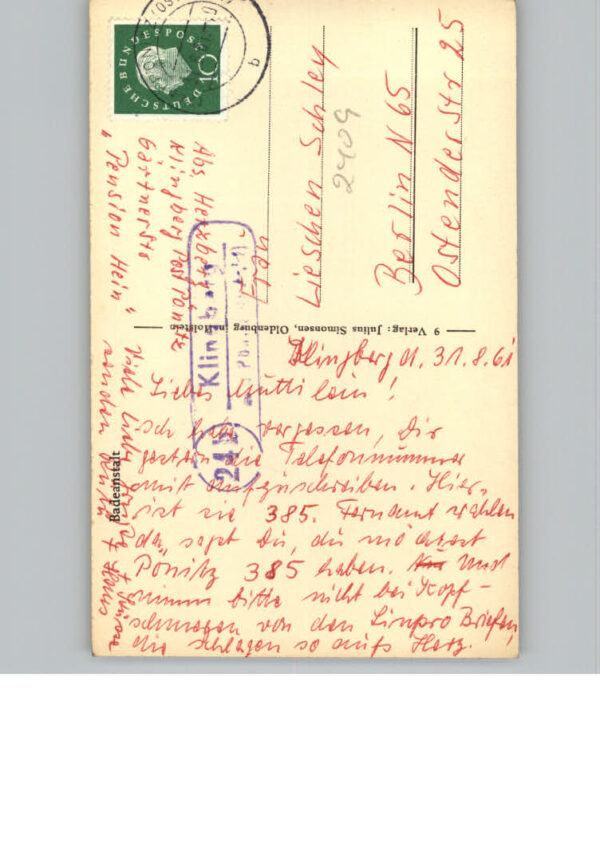 DEUTSCHE BUNDESPOST
10
b
Lieschen Schley
2409
Berlin N 65
Ostender Str 25
Abs. Herzberg
Klingberg Post Pönitz
Gärtnerstr
"Pension Hein"
Klingberg
24b
9 Verlag: Julius Simonsen, Oldenburg in Holstein
Badeanstalt
Klingberg d. 31.8.61
Liebes Muttilein!
Ich habe vergessen, Dir
gestern die Telefonnummer
mit aufzuschreiben. Hier
ist sie 385. Fernamt wählen
da, sagst Du, du möchtest
Pönitz 385 haben. Und
nimm bitte nicht bei Kopf-
schmerzen von den Briefen,
die schlagen so aufs Herz.
Viele liebe Grüße + Küsse
senden + Klaus